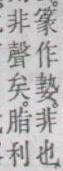 篆作𡠗。非也
非聲矣。脂利